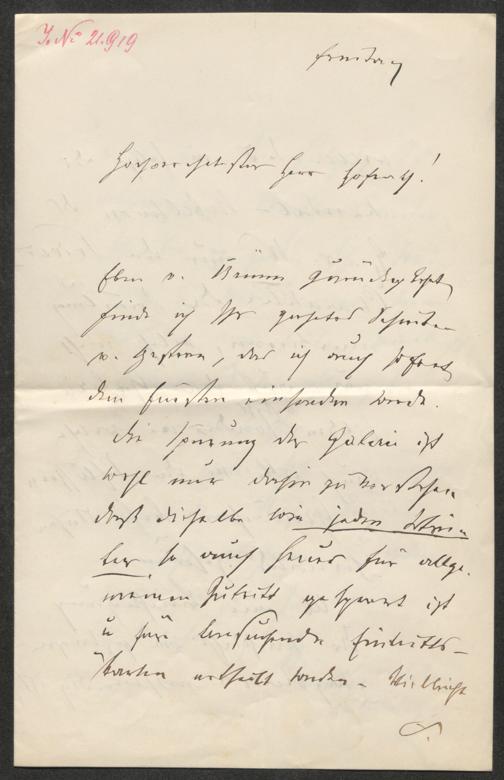 J. No 21.919
Freitag
Hochverehrtester Herr Hofrath!
Eben v. Brünn zurückgekehrt
finde ich Ihr geehrtes Schreiben
v. Gestern, das ich auch sofort
dem Fürsten einsenden werde.
Die Sperrung der Galerie ist
wohl nur dahin zu verstehen
daß dieselbe wie jeden Octo-
ber so auch heuer für allge-
meinen Zutritt gesperrt ist
u für Eintritts-
karten ertheilt werden. Vielleicht